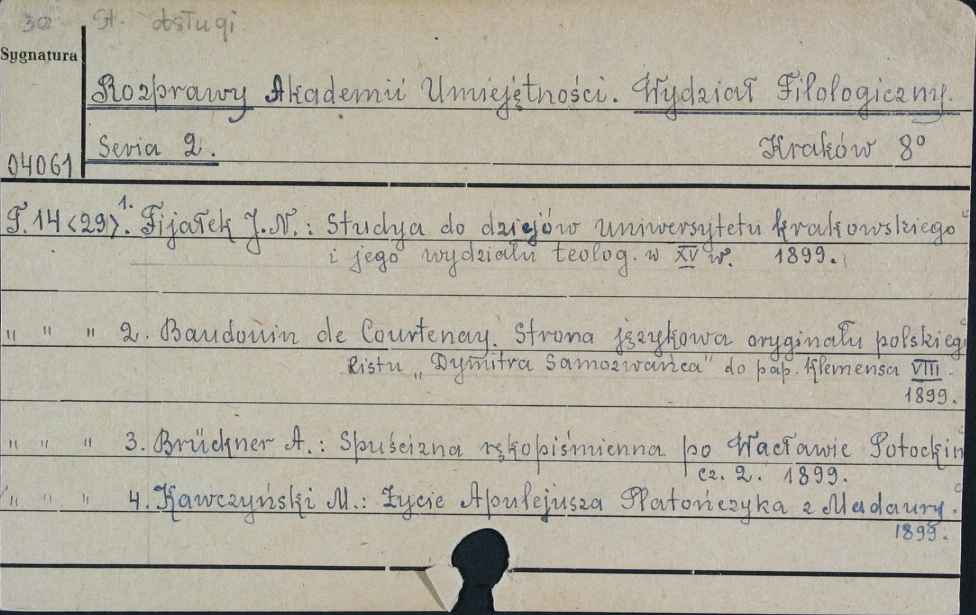 30 St. obsługi
Sygnatura
Rozprawy Akademii Umiejętności. Wydział Filologiczny.
Seria 2. Kraków 8°
04061
T. 14 <29>. 1. Fijałek J. N.: Studya do dziejów uniwersytetu krakowskiego
i jego wydziału teolog. w XV w. 1899.
" " " 2. Baudouin de Courtenay. Strona językowa oryginału polskieg
listu „Dymitra Samozwańca" do pap. Klemensa VIII.
1899.
" " " 3. Brückner A.: Spuścizna rękopiśmienna po Wacławie Potockim
cz. 2. 1899.
" " " 4. Kawczyński M.: Życie Apulejusza Platończyka z Madaury.
1899.